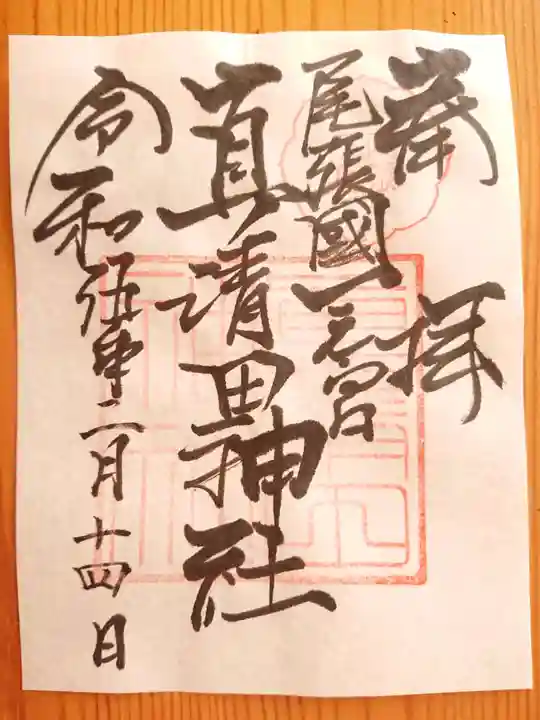 奉拝
尾張國一之宮
真清田神社
令和伍年二月十四日